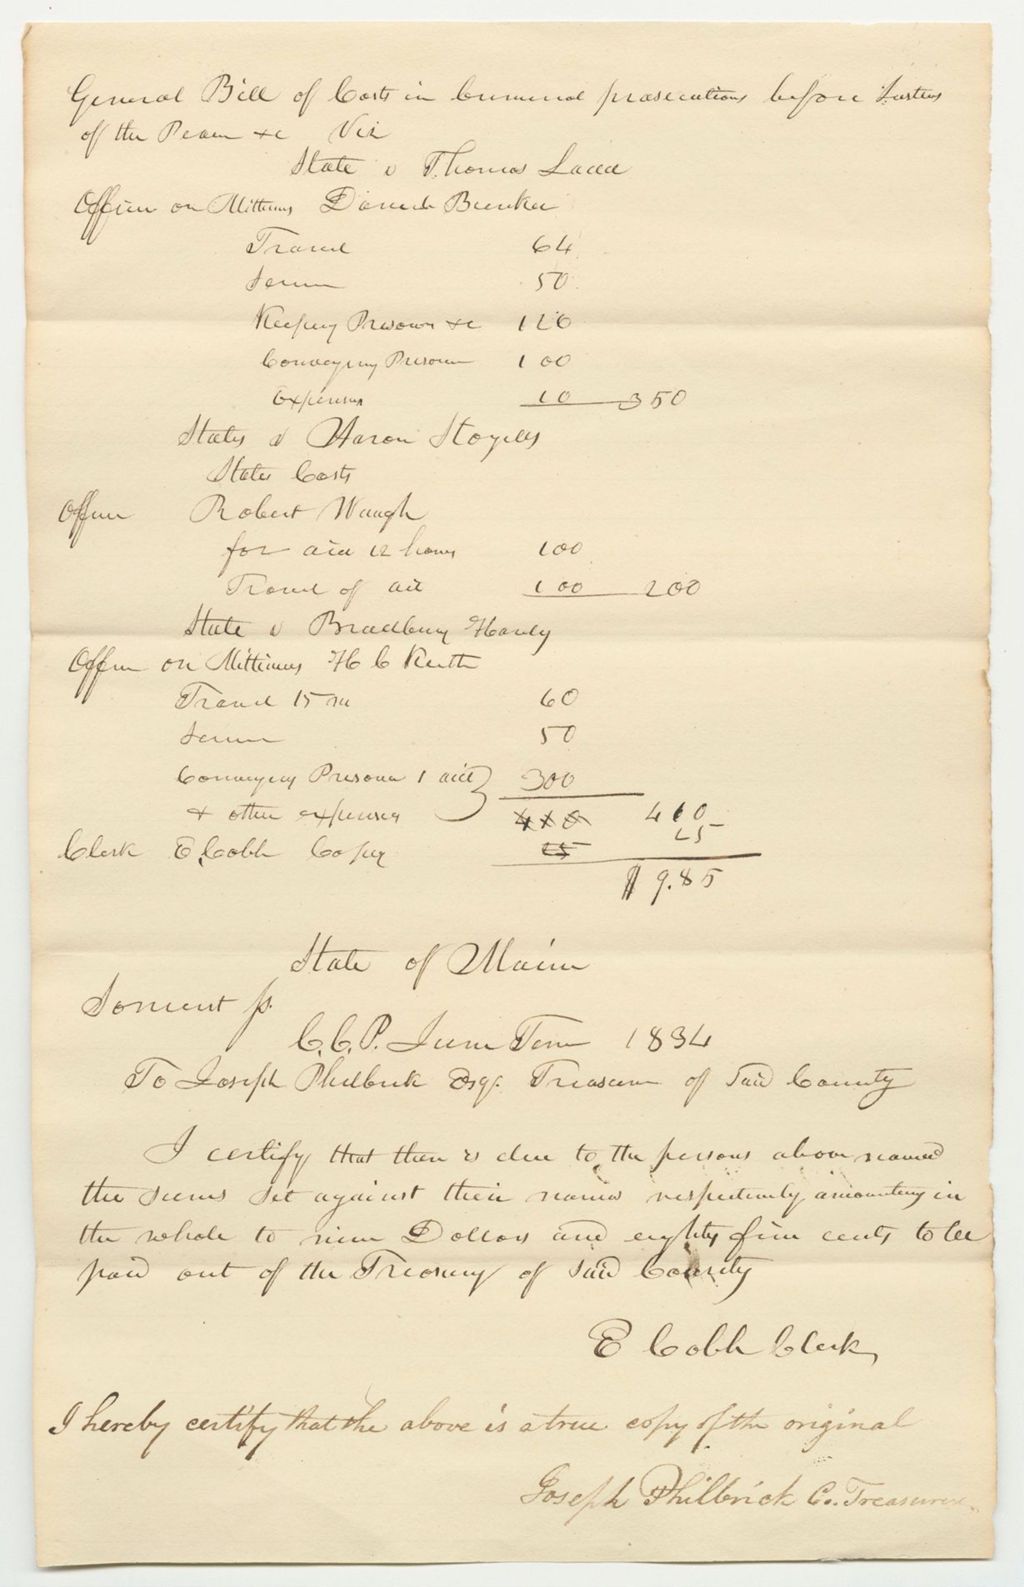 General Bill of Costs in Criminal prosecutions before Justices
of the Peace &c Viz
State v Thomas Ladd
Officer on Mittimus Daniel Bunker
Travel 64
Service 50
Keeping Prisoner &c 126
Conveying Prisoner 100
Expenses 10 350
State v Aaron
States Costs
Officer Robert Waugh
for aid 12 hours 100
Travel of aid 100 200
State v Bradbury Hardy
Officer on Mittimus H C Keith
Travel 15 m 60
Service 50
Conveying Prisoner 1 aid 300
& other expenses 410 410
Clerk E Cobb Copy 25 25
$ 9.85
State of Maine
Somerset ss.
C.C.P. June Term 1834
To Joseph Philbrick Esqr. Treasurer of Said County
I certify that there is due to the persons above named
the sums set against their names respectively amounting in
the whole to nine Dollars and eighty five cents to be
paid out of the Treasury of Said County
E Cobb Clerk
I hereby certify that the above is a true copy of the original
Joseph Philbrick Co. Treasurer